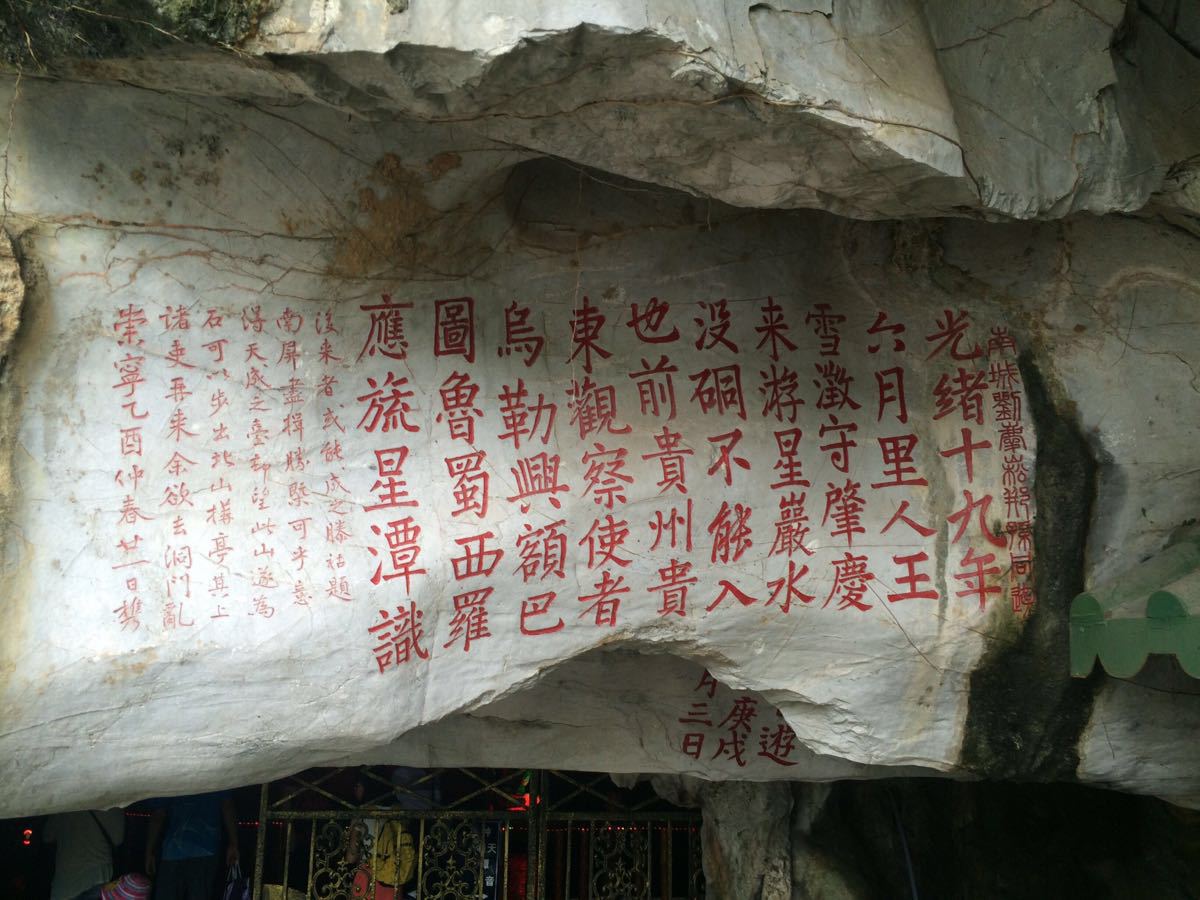 南城劉蘭崧郑孫同遊
光緒十九年
六月里人王
雪澂守肇慶
来游星巖水
没硐不能入
也前貴州貴
東觀察使者
烏勒興額巴
圖魯蜀西羅
應旒星潭識
後来者或能成之勝祜題
南屏盡揖勝槩可乎意
得天成之臺却望此山遂為
石可以步出北山構亭其上
諸吏再来余欲去洞門亂
崇寧乙酉仲春廿一日㨗
遊
庚戌
三日
天
音